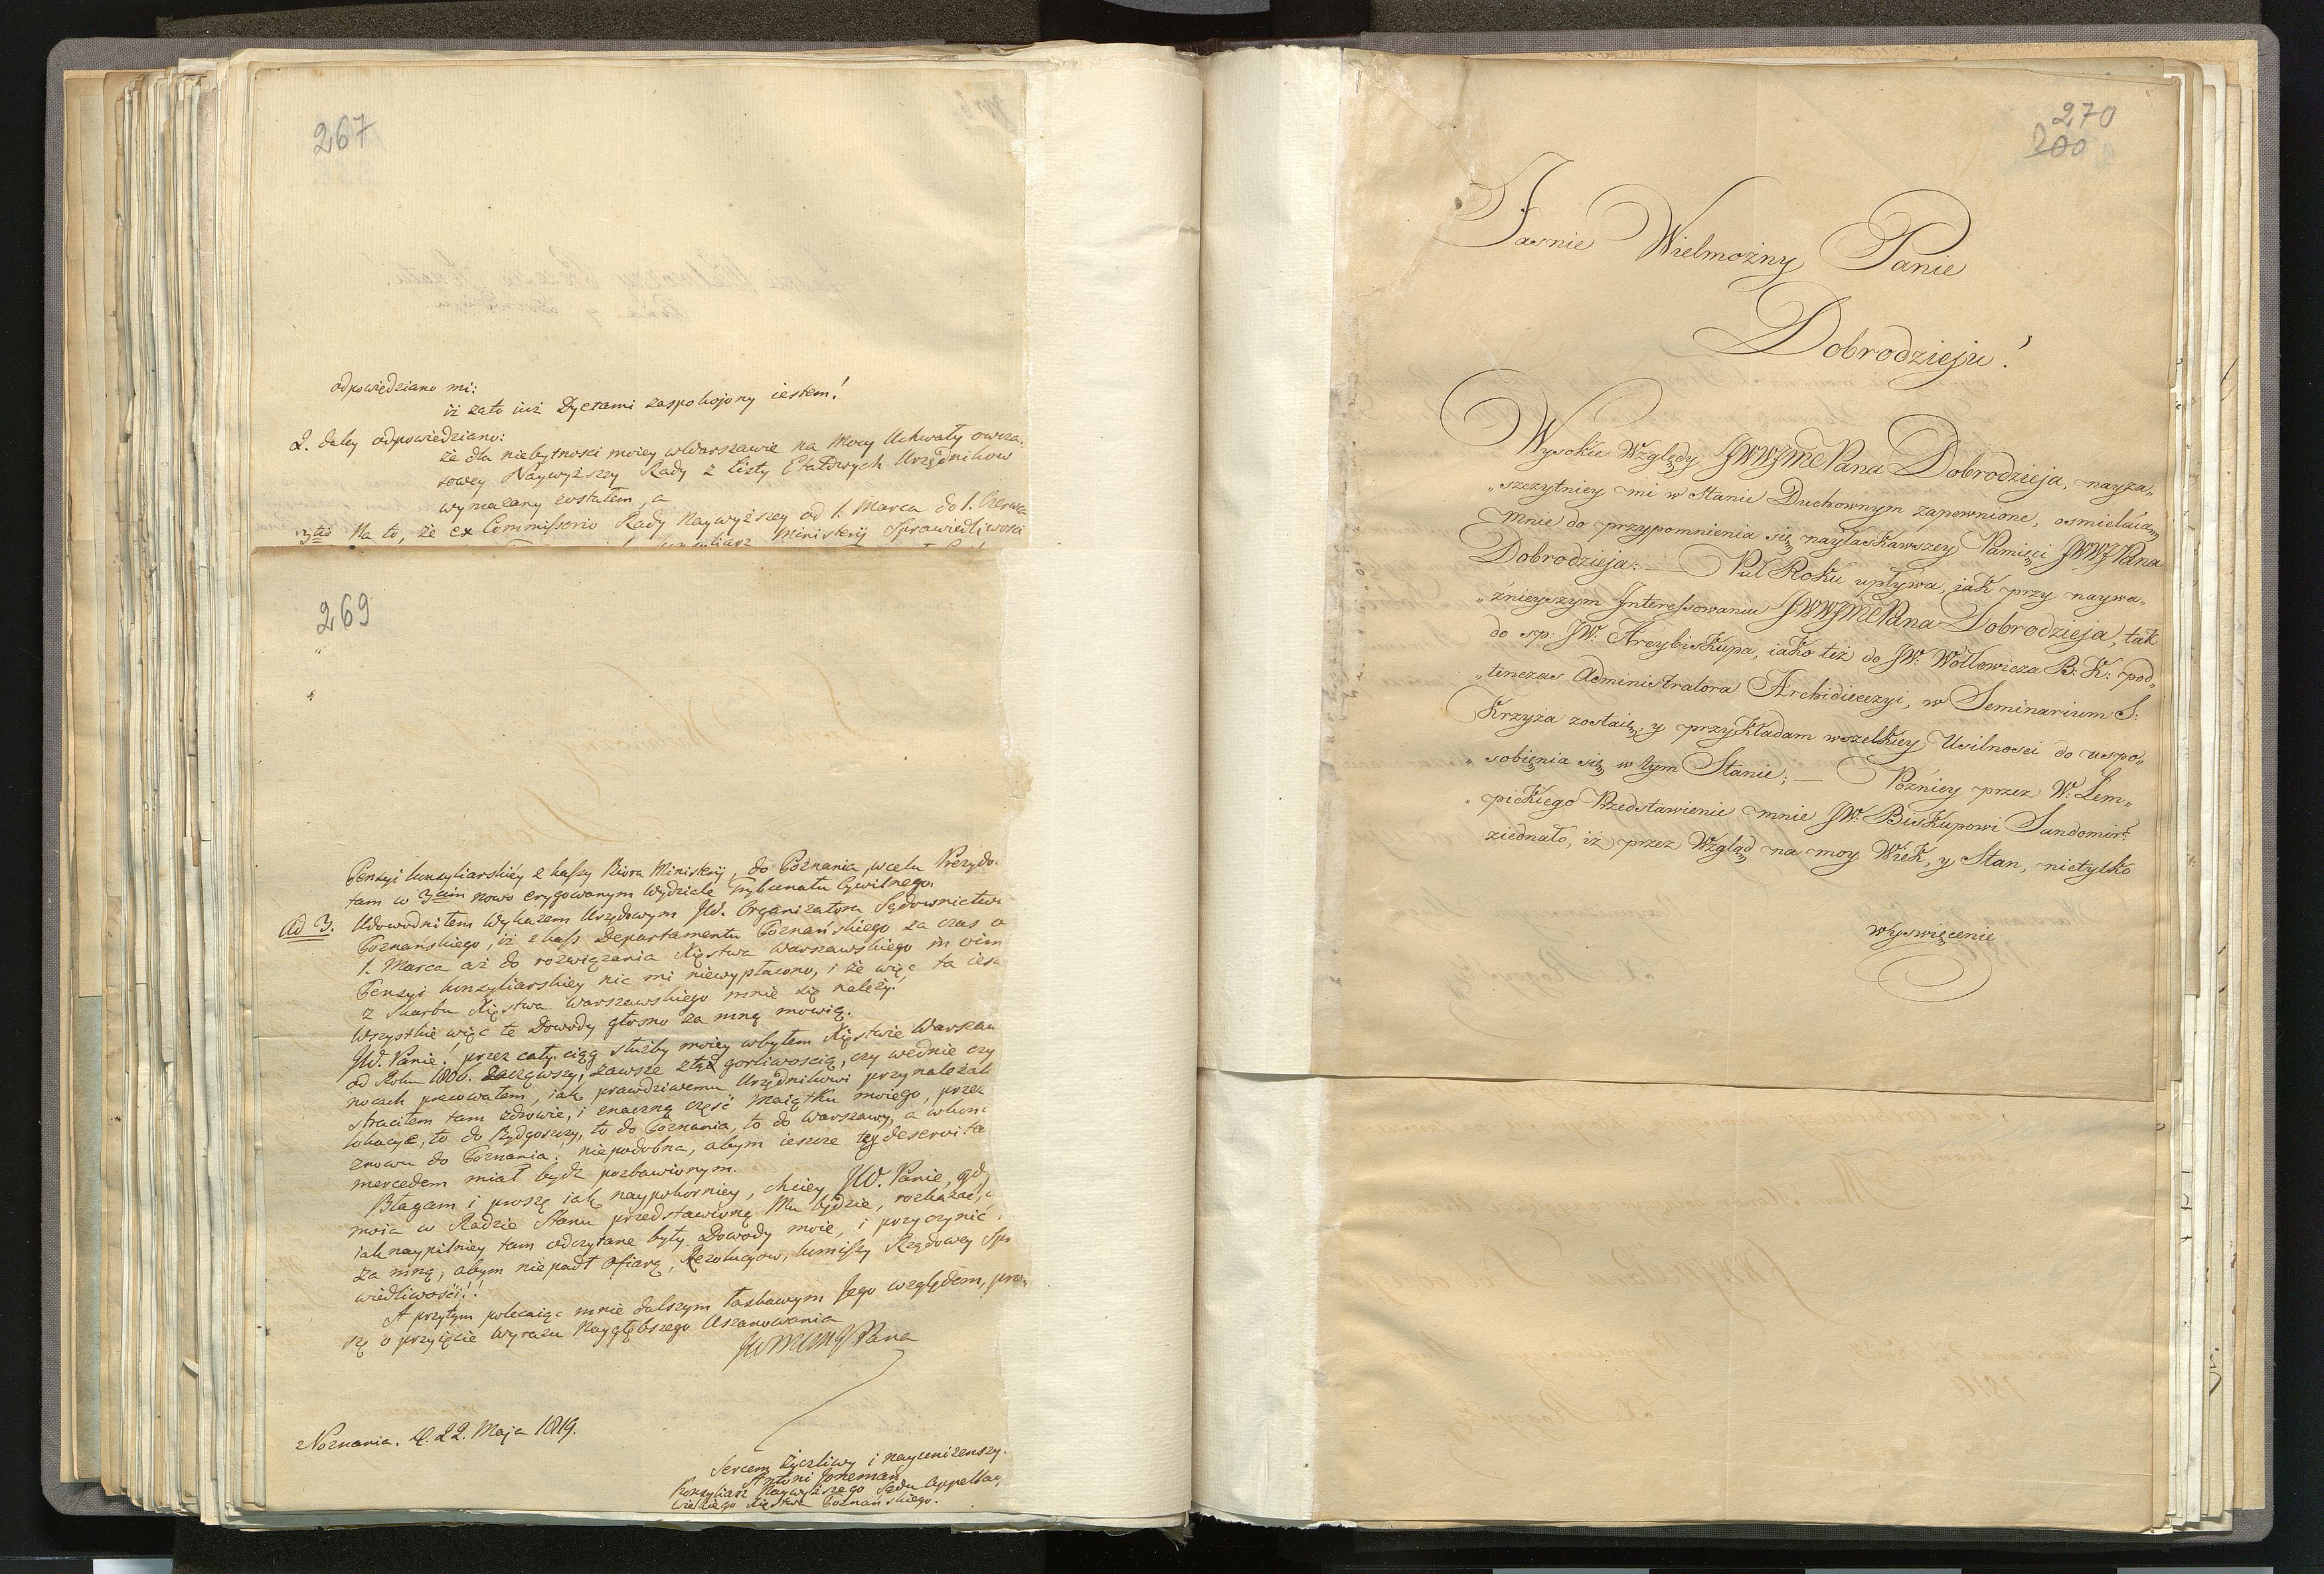 267
odpowiedziano mi:
iż zato iuż Dyetami zaspokojony iestem!
2. daley odpowiedziano:
że dla niebytnosci moiey w Warszawie na Mocy Uchwały owcza„
sowey Naywyższey Rady z listy Etatowych Urzędnikow
wymazany zostałem, a
3tio Na to, że ex Commissorio Rady Naywyższey od 1. Marca do 1. Czerwca
Ministrij Sprawiedliwosci
269
Pensyi konsyliarskiey z kassy Biura Ministrij, do Poznania, w celu Prezydo
tam w 3cim nowo erygowanym Wydziale Trybunału Cywilnego.
Ad 3. Udowodniłem Wykazem Urzędowym JW. Organizatora Sądownictwa
Poznańskiego, iż z kass Departamentu Poznańskiego za czas o
1. Marca aż do rozwiązania Xięstwa Warszawskiego in vim
Pensyi konsyliarskiey nic mi niewypłacono, i że więc ta iesz
z Skarbu Xięstwa Warszawskiego mnie się należy.
Wszystkie więc te Dowody głosno za mną mowią.
JW. Panie! przez cały ciąg służby moiey w byłem Xięstwie Warszaw
od Roku 1806. zacząwszy, zawsze z tąż gorliwoscią, czy wednie czy
nocach pracowałem, iak prawdziwemu Urzędnikowi przynależało
straciłem tam zdrowie, i znaczną część Maiątku moiego, przez
lokacye, to do Bydgoszczy, to do Poznania, to do Warszawy, a wkoń
znowu do Poznania; niepodobna, abym ieszcze tey deservita
mercedem miał bydź pozbawionym.
Błagam i proszę iak naypokorniey, chciey JW. Panie, gdy
moia w Radzie Stanu przedstawioną Mu będzie, rozkazać,
iak naypilniey tam odczytane były Dowody moie, i przyczynić
za mną, abym niepadł ofiarą, Rezolucyow, kommissyi Rządowey Spr
wiedliwości!!
A przytym polecaiąc mnie dalszym łaskawym Jego względem, pro„
szę o przyięcie wyrazu Naygłębszego Uszanowania
JWWMMGPana
z Poznania. d. 22. Maja 1819.
Sercem życzliwy i nayuniżenszy
Antoni
Konsyliarz Naywyższego Sądu Appellac
Wielkiego Xięstwa Poznańskiego.
270
200
Jasnie Wielmożny Panie
Dobrodzieju!
Wysokie Względy JWWJMC Pana Dobrodzieja, nayza„
„szczytniey mi w Stanie Duchownym zapewnione, osmielaią
mnie do przypomnienia się nayłaskawszey Pamięci JWWJ Pana
Dobrodzieja: — Puł Roku upływa, jak przy naywa„
„żnieyszym Interessowaniu JWWJMC Pana Dobrodzieja, tak
do sp: JW: Arcybiskupa, iako też do JW: Wołłowicza B: K: pod„
„tenczas Administratora Archidiecezyi, w Seminarium S:
Krzyża zostaię; y przykładam wszelkiey Usilnosci do uspo„
„sobięnia się w tym Stanie; — Pozniey przez W: Lem„
„pickiego Przedstawienie mnie JW: Biskupowi Sandomir:
ziednało, iż przez Wzgląd na moy Wiek, y Stan, nietylko
wyswięcenie